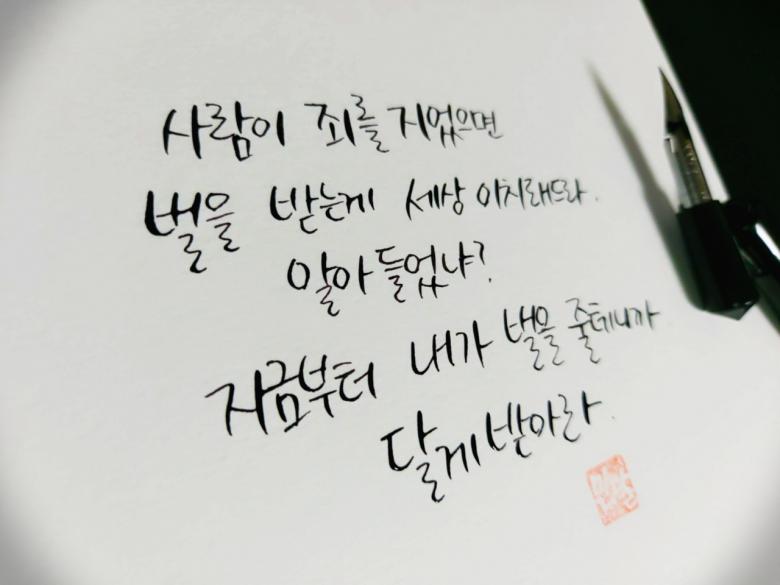 사람이 죄를 지었으면
벌을 받는게 세상 이치래드라.
알아 들었냐?
지금부터 내가 벌을 줄테니까
달게 받아라.